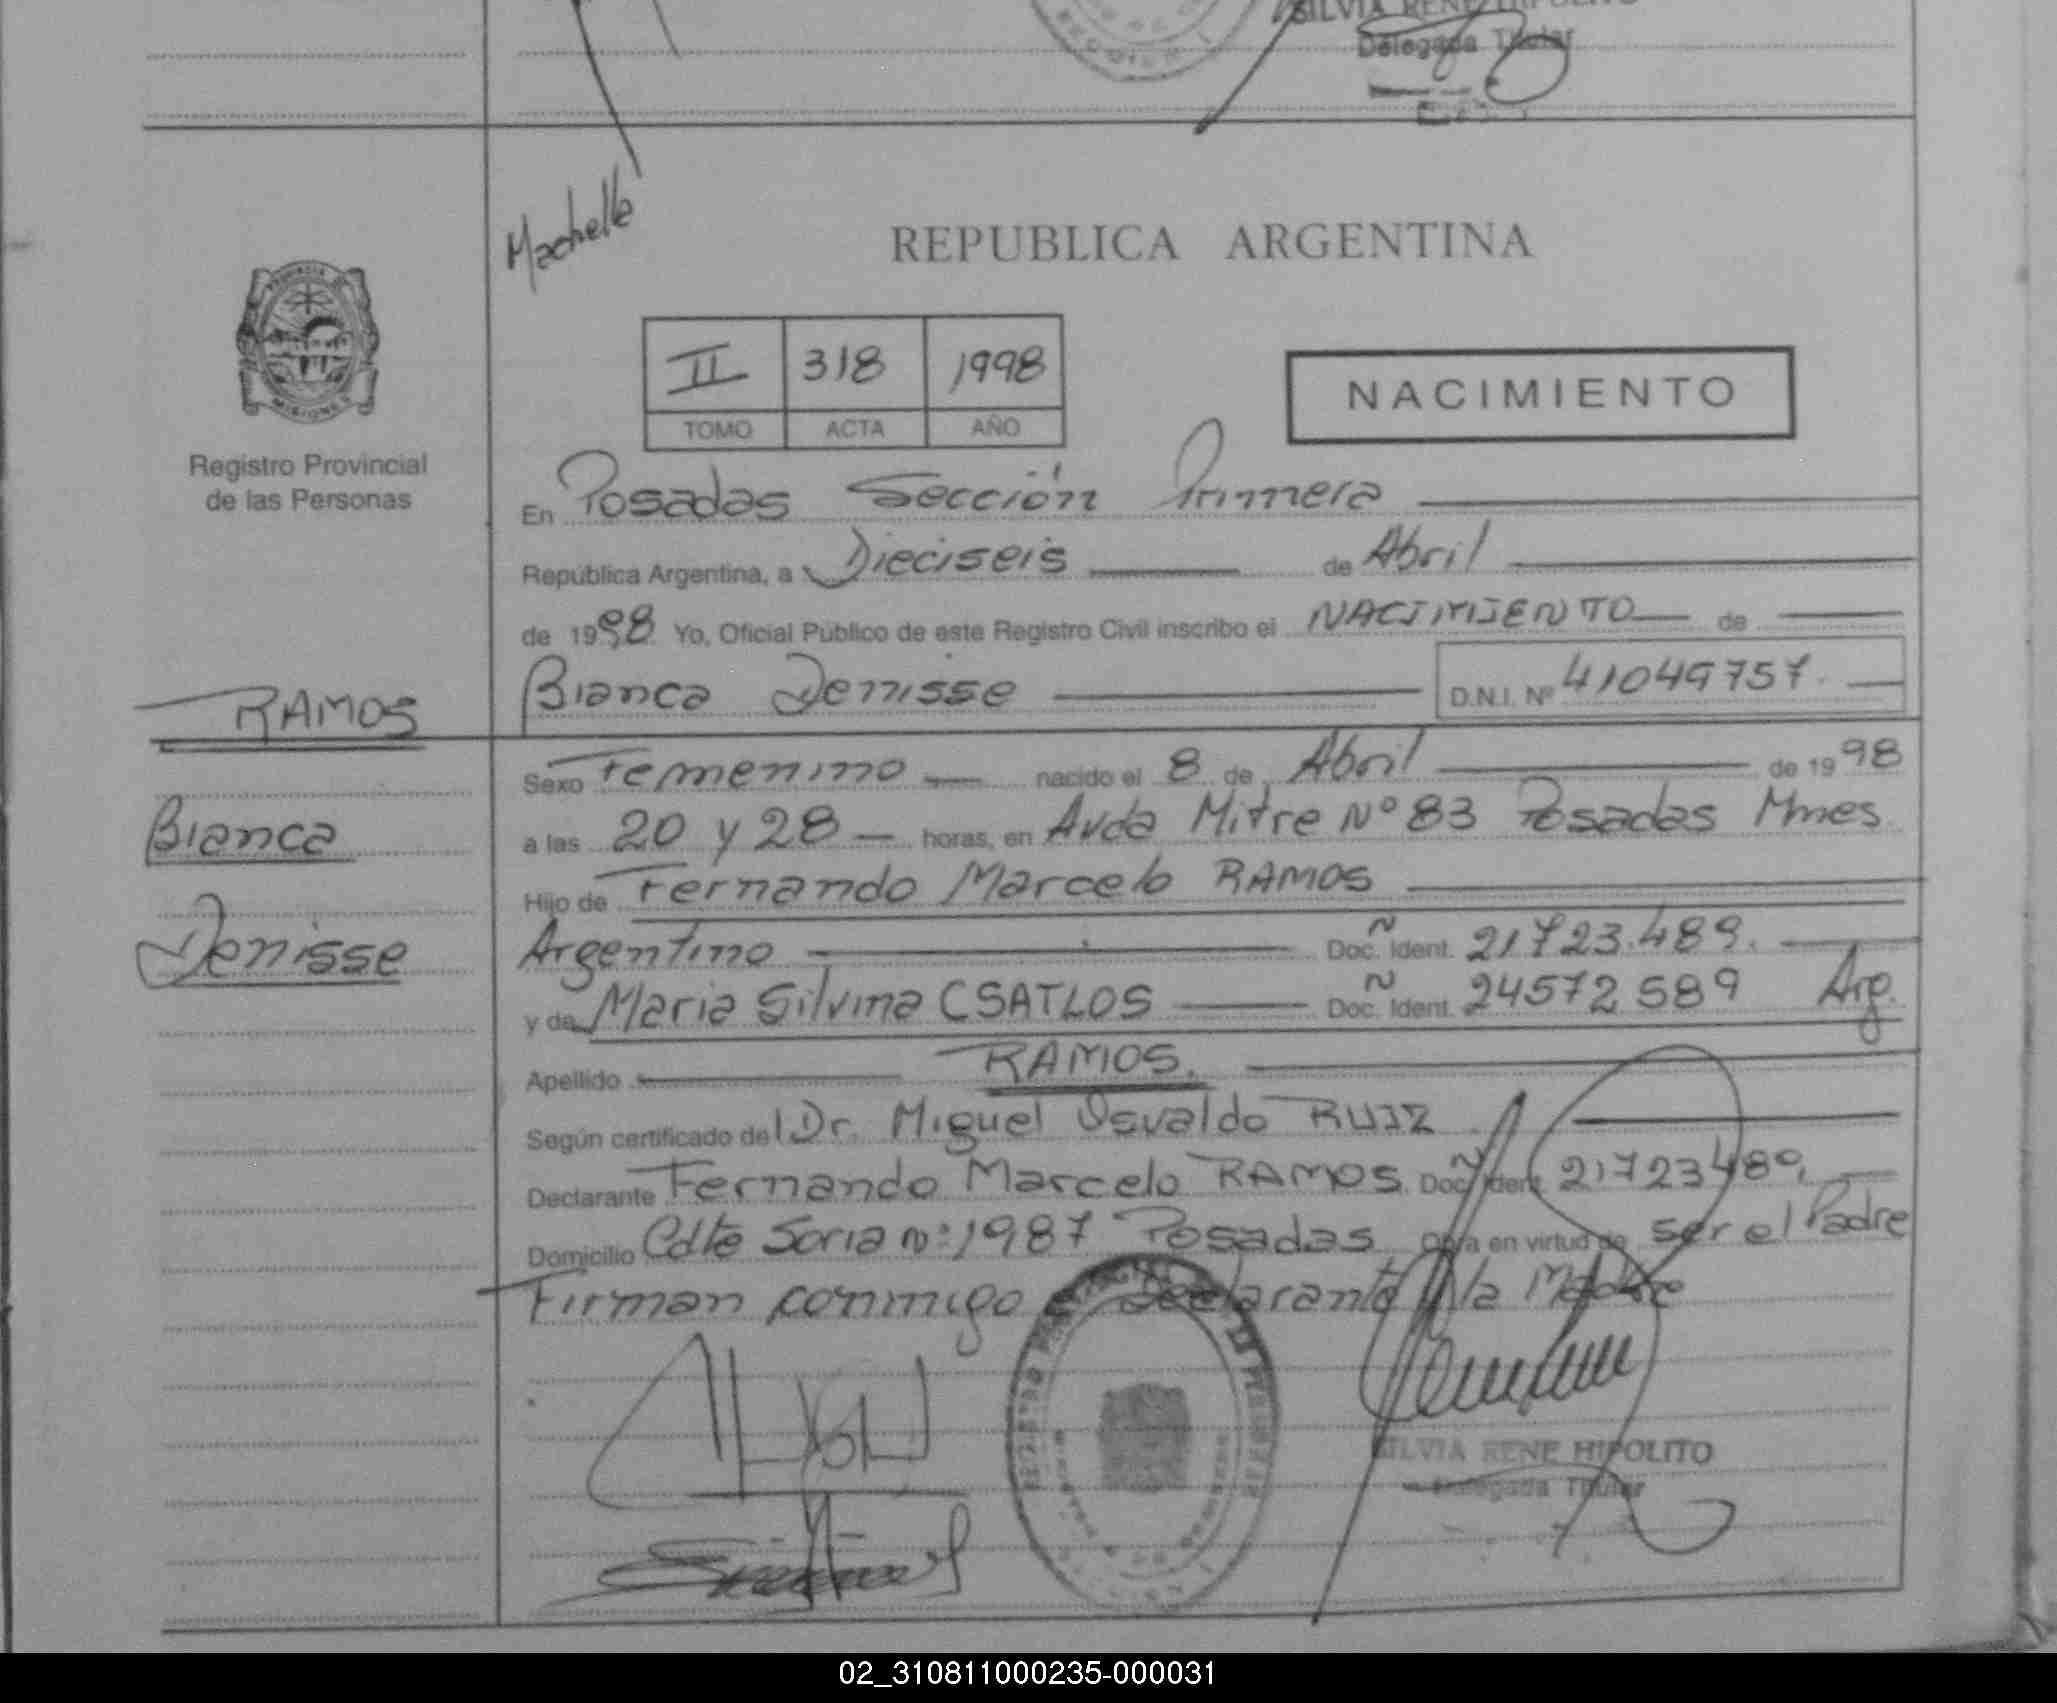 SILVIA RENE HIPOLITO
Delegada Titular
Machelle
REPUBLICA ARGENTINA
PROVINCIA DE
MISIONES
II 318 1998
TOMO ACTA AÑO
NACIMIENTO
Registro Provincial
de las Personas
En Posadas Sección Primera
República Argentina, a Dieciseis de Abril
de 1998 Yo, Oficial Público de este Registro Civil inscribo el NACIMIENTO de
Bianca Denisse D.N.I. Nº 41049757.
RAMOS
Bianca
Denisse
Sexo Femenino nacido el 8 de Abril de 1998
a las 20 y 28 horas, en Avda Mitre Nº 83 Posadas Mnes
Hijo de Fernando Marcelo RAMOS
Argentino Doc. Ident. 21723.489.
y de Maria Silvina CSATLOS Doc. Ident. 24572589 Arg.
Apellido RAMOS.
Según certificado del Dr. Miguel Osvaldo RUIZ
Declarante Fernando Marcelo RAMOS Doc. Ident. 21723489,
Domicilio Cdte Soria nº 1987 Posadas Obra en virtud de ser el Padre
Firman conmigo el Declarante y la Madre
SILVIA RENE HIPOLITO
Delegada Titular
02_310811000235-000031